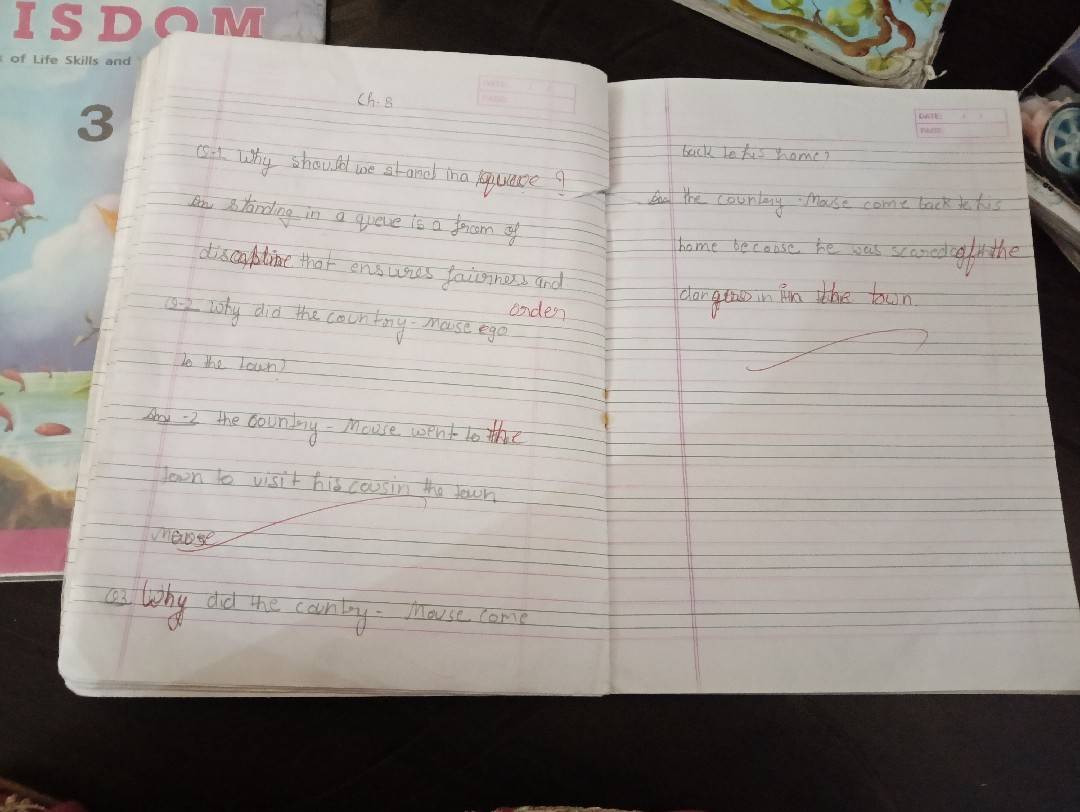 ISDOM
of Life Skills and
3
Ch. 8
DATE:
PAGE:
Q-1 Why should we stand in a queue ?
Ans Standing in a queue is a forcom of
discapline that ensures fairness and
order
Q-2 Why did the country - Mouse ego
to the town?
Ans -2 the country - Mouse went to the
town to visit his cousin the town
Mouse
Q3 Why did the country - Mouse come
DATE:
PAGE:
back to his home?
Ans the country - Mouse come back to his
home becaose he was scared of the
in in the town.